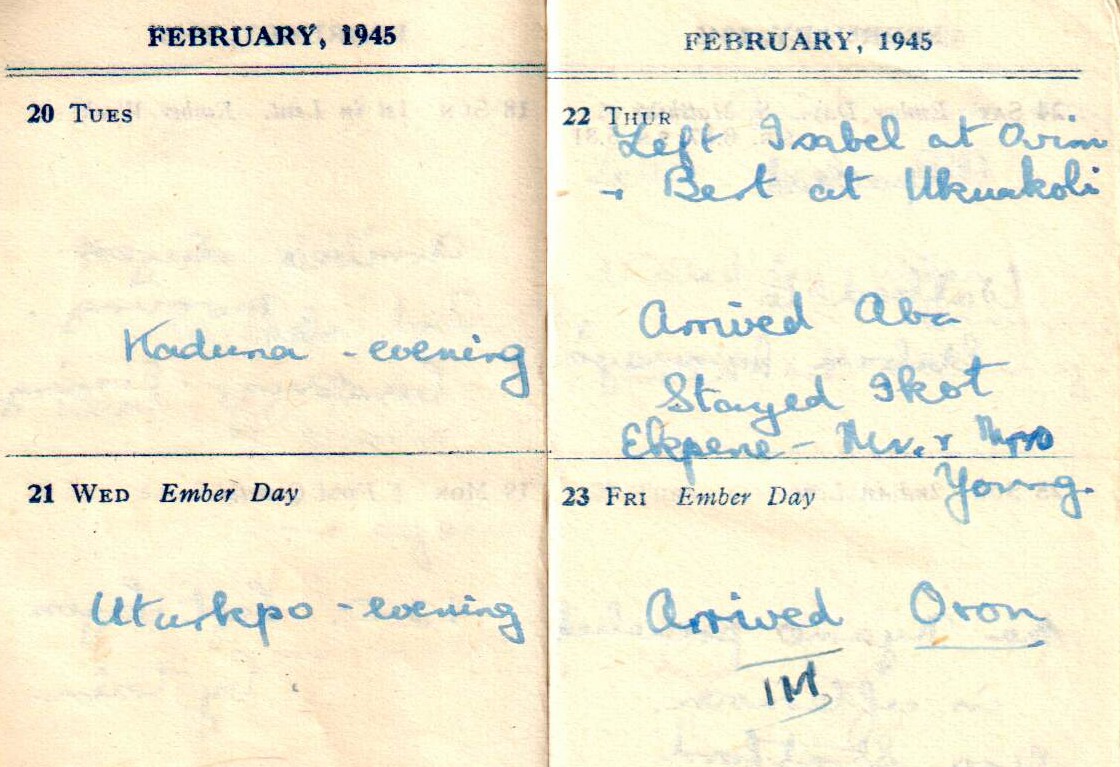 FEBRUARY, 1945
20 TUES
Kaduna - evening
21 WED Ember Day
Uturkpo - evening
FEBRUARY, 1945
22 THUR
Left Isabel at Ovim
+ Bert at Ukuakoli
Arrived Aba
Stayed Ikot
Ekpene - Mr. & Mrs
Young.
23 FRI Ember Day
Arrived Oron
1M